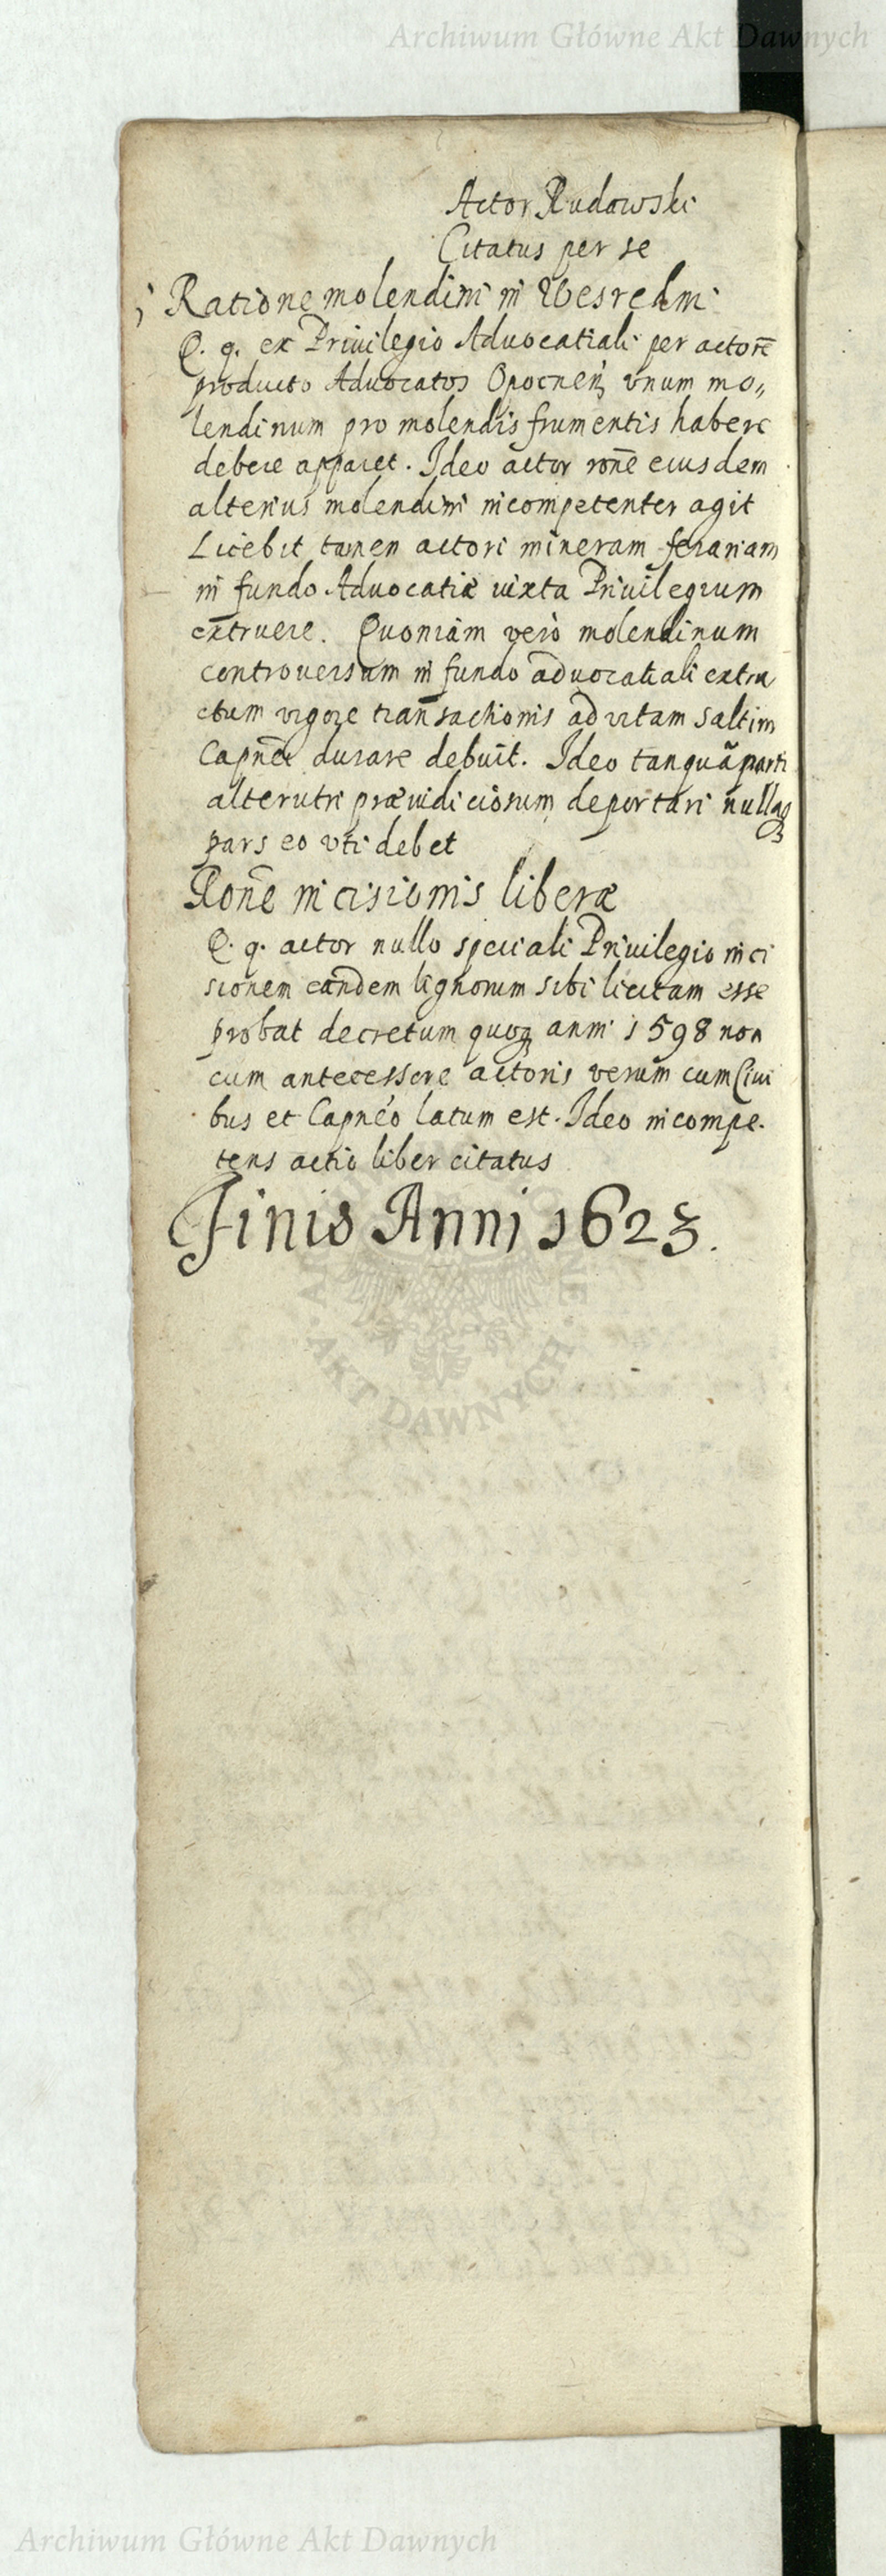 Archiwum Główne Akt Dawnych
Actor Rudowski
Citatus per se
Ratione molendini in Wesredni
Q. q. ex Priuilegio Aduocatiali per actorē
producto Aduocatos Opocnen̄ vnum mo„
lendinum pro molendis frumentis habere
debere apparet. Ideo actor rone̅ eiusdem
alterius molendini incompetenter agit
Licebit tamen actori mineram ferariam
in fundo Aduocatiæ iuxta Priuilegium
extruere. Quoniam vero molendinum
controuersum in fundo aduocatiali extru
ctum vigore transactionis ad vitam saltim
Capnei durare debuit. Ideo tanquā parti
alterutri præiudiciosum deportari nullaq
pars eo vti debet
Rone̅ incisionis liberæ
Q. q. actor nullo speciali Priuilegio inci
sionem eandem lignorum sibi licitam esse
probat decretum quoq anni 1598 non
cum antecessore actoris verum cum Ciui
bus et Capneo latum est. Ideo incompe.
tens actio liber citatus
Finis Anni 1623.
AKT DAWNYCH
Archiwum Główne Akt Dawnych